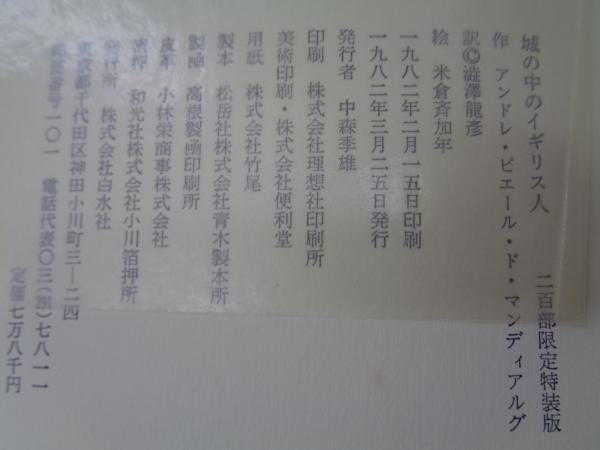 城の中のイギリス人 二百部限定特装版
作 アンドレ・ピエール・ド・マンディアルグ
訳©澁澤龍彦
絵 米倉斉加年
一九八二年二月一五日印刷
一九八二年三月二五日発行
発行者 中森季雄
印刷 株式会社理想社印刷所
美術印刷・株式会社便利堂
用紙 株式会社竹尾
製本 松岳社株式会社青木製本所
製凾 高根製凾印刷所
皮革 小林栄商事株式会社
箔押 和光社株式会社小川箔押所
発行所 株式会社白水社
東京都千代田区神田小川町三―二四
郵便番号一〇一 電話代表〇三(291)七八一一
定価七万八千円